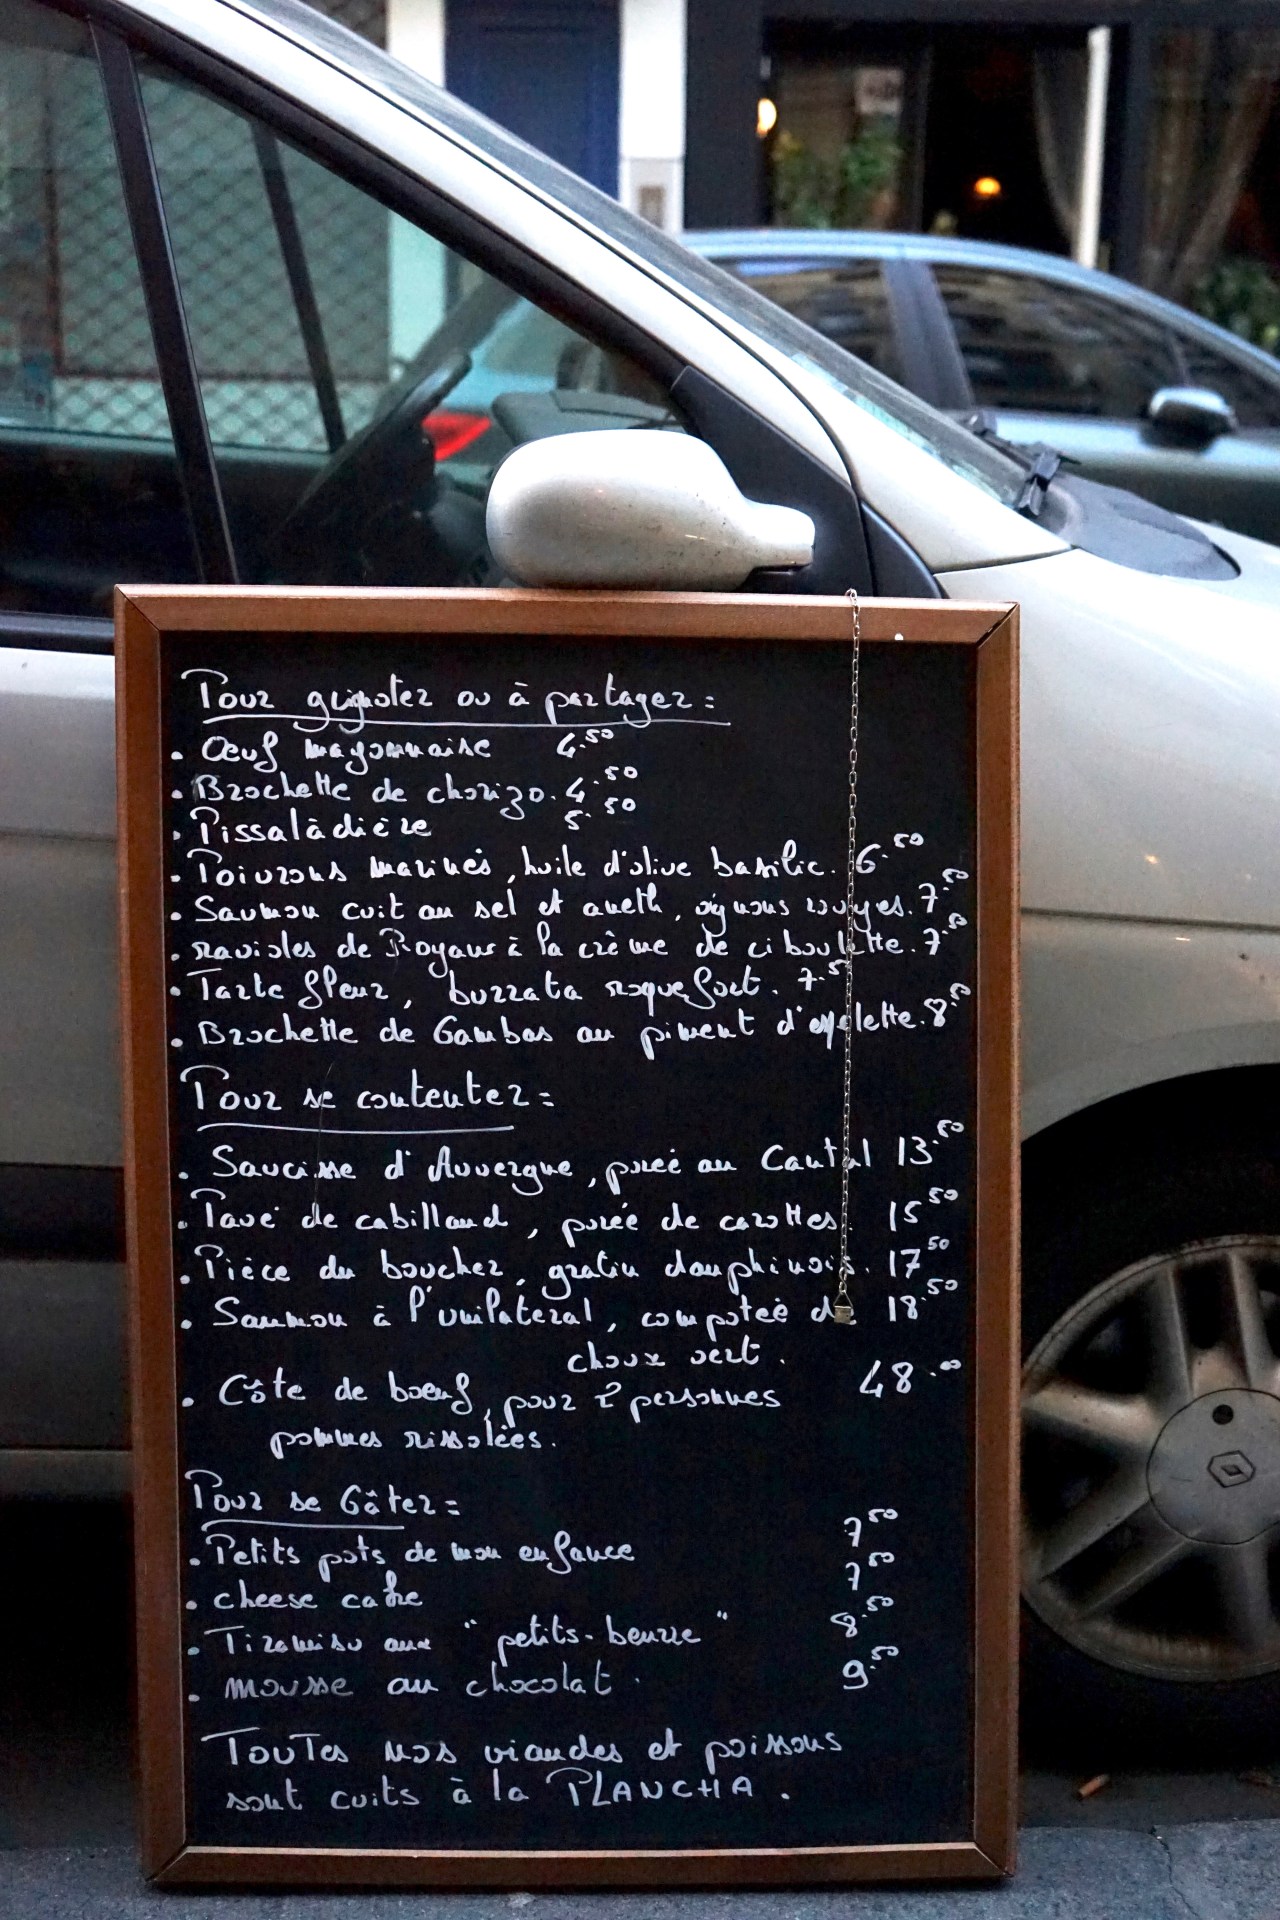 Pour grignoter ou à partager =
• Œuf mayonnaise 4.50
• Brochette de chorizo. 4.50
• Pissaladière 5.50
• Poivrons marinés, huile d'olive basilic. 6.50
• Saumon cuit au sel et aneth, oignons rouges. 7.50
• ravioles de Royans à la crème de ciboulette. 7.50
• Tarte fleur, burrata roquefort. 7.50
• Brochette de Gambas au piment d'espelette. 8.50
Pour se contenter =
• Saucisse d'Auvergne, purée au Cantal 13.50
• Pavé de cabillaud, purée de carottes. 15.50
• Pièce du boucher, gratin dauphinois. 17.50
• Saumon à l'unilatéral, compotée de 18.50
choux vert.
• Côte de bœuf, pour 2 personnes 48.00
pommes rissolées.
Pour se Gâter =
• Petits pots de mon enfance 7.50
• cheese cake 7.50
• Tiramisu aux "petits-beurre" 8.50
• mousse au chocolat. 9.50
Toutes nos viandes et poissons
sont cuits à la PLANCHA.